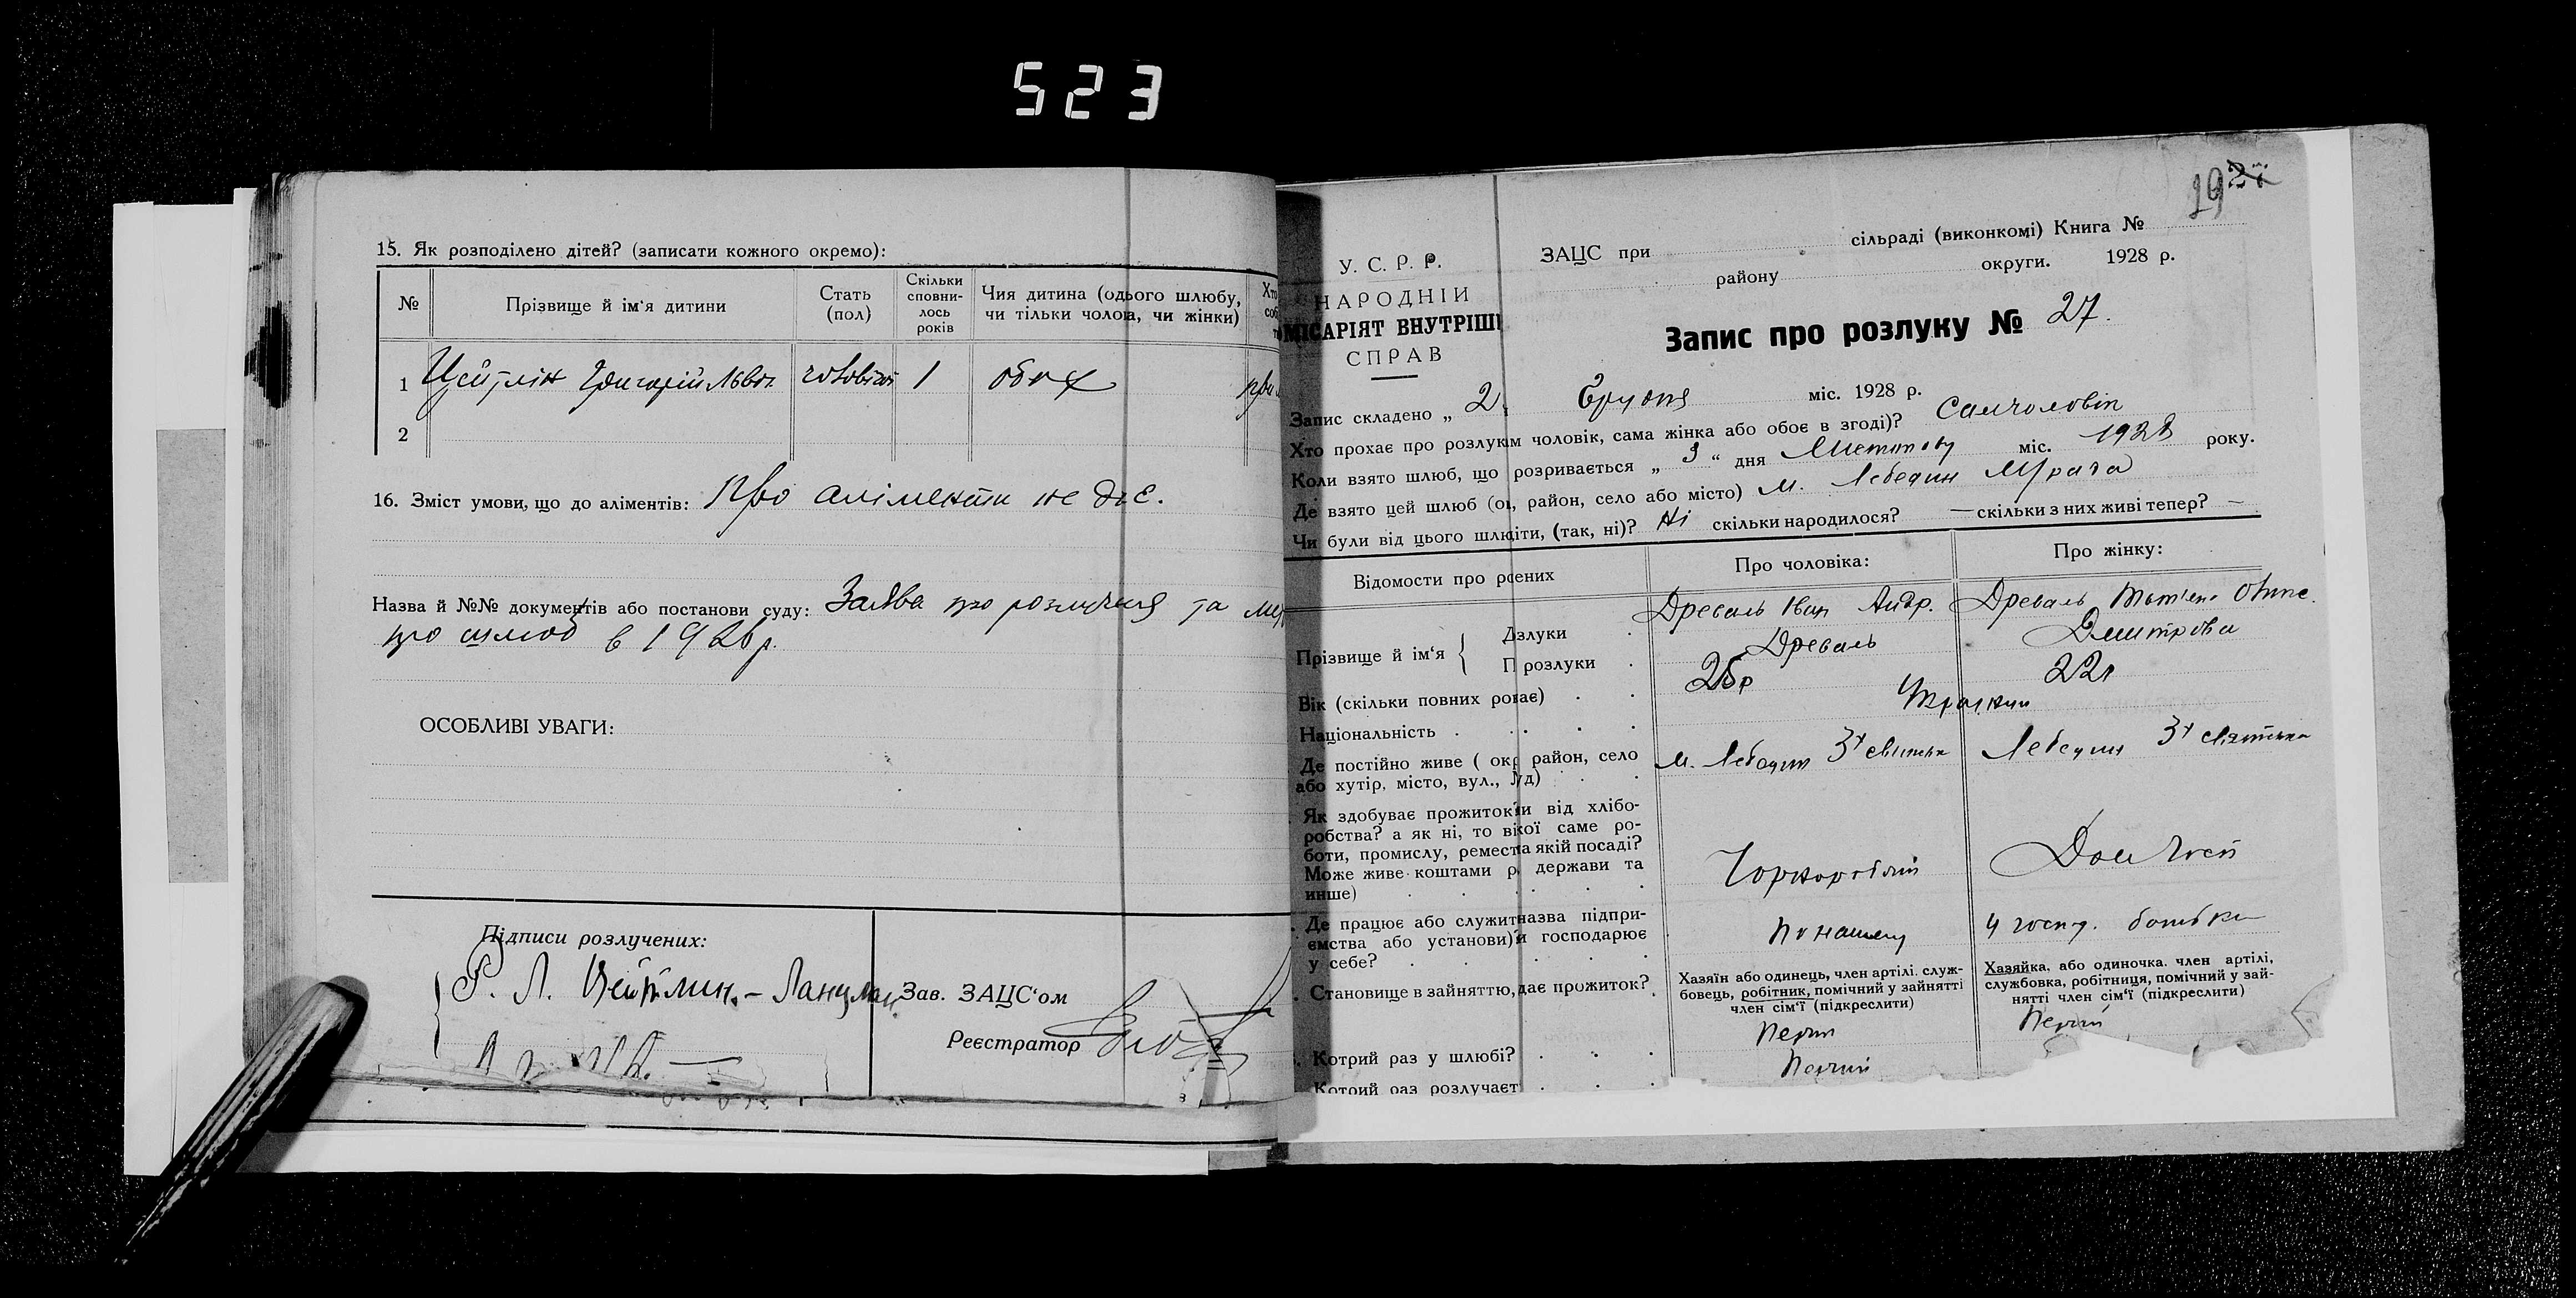 523
15. Як розподілено дітей? (записати кожного окремо):
№ Прізвище й ім'я дитини Стать (пол) Скільки сповнилось років Чия дитина (одього шлюбу, чи тільки чолові, чи жінки)
1 Цейтлін Григорій Львов. чоловіч 1 обох
2
16. Зміст умови, що до аліментів: Про аліменти не
Назва й №№ документів або постанови суду: Заява про розлучення та
про шлюб в 1926 р.
ОСОБЛИВІ УВАГИ:
Підписи розлучених:
Р. Л. Цейтлин.-Ланцман
Зав. ЗАЦС'ом
Реєстратор
19 27
У. С. Р. Р.
НАРОДНІЙ
МІСАРІЯТ ВНУТРІШ
СПРАВ
ЗАЦС при сільраді (виконкомі) Книга №
району округи. 1928 р.
Запис про розлуку № 27.
Запис складено „ 2 Грудня міс. 1928 р.
Хто прохає про розлукім чоловік, сама жінка або обоє в згоді)? Сам чоловік
Коли взято шлюб, що розривається „ 3 “ дня Лютого міс. 1928 року.
Де взято цей шлюб (оі, район, село або місто) м. Лебедин
Чи були від цього шлюіти, (так, ні)? Ні скільки народилося? — скільки з них живі тепер? —
Відомости про рсених Про чоловіка: Про жінку:
Прізвище й ім'я
Дзлуки Древаль Іван Андр. Древаль
П розлуки Древаль Дмитрова
Вік (скільки повних роває) 26р 22р
Національність Українці
Де постійно живе ( окр район, село або хутір, місто, вул., Јуд) м. Лебедин Лебедин
Як здобуває прожитокій від хлібо-
робства? а як ні, то вікої саме ро-
боти, промислу, реместа якій посаді?
Може живе коштами р, держави та
инше) Чорноробочий
Де працює або служитназва підпри-
ємства або установи)й господарює
у себе? По найму У госпд. батьки
Становище в зайняттю,дає прожиток?
Хазяїн або одинець, член артілі. служ-
бовець, робітник, помічний у зайнятті
член сім'ї (підкреслити)
Хазяйка, або одиночка. член артілі,
службовка, робітниця, помічний у зай-
нятті член сім'ї (підкреслити)
Котрий раз у шлюбі? Перший Перший
Котрий раз розлучаєт Перший